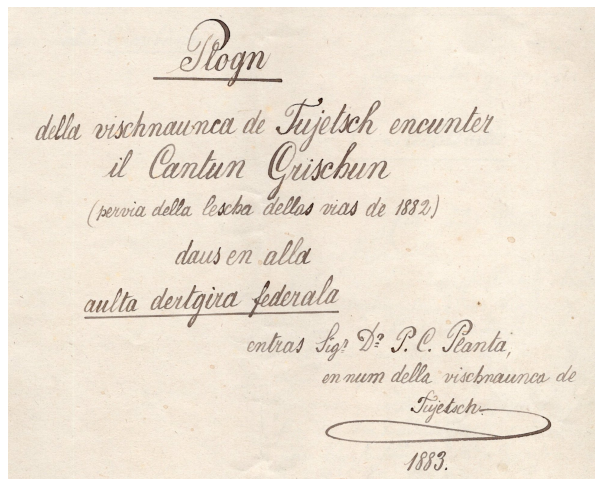 Plogn
della vischnaunca de Tujetsch encunter
il Cantun Grischun
(pervia della lescha dellas vias de 1882)
daus en alla
aulta dertgira federala
entras Sigr Dr P. C. Planta,
en num della vischnaunca de
Tujetsch.
1883.